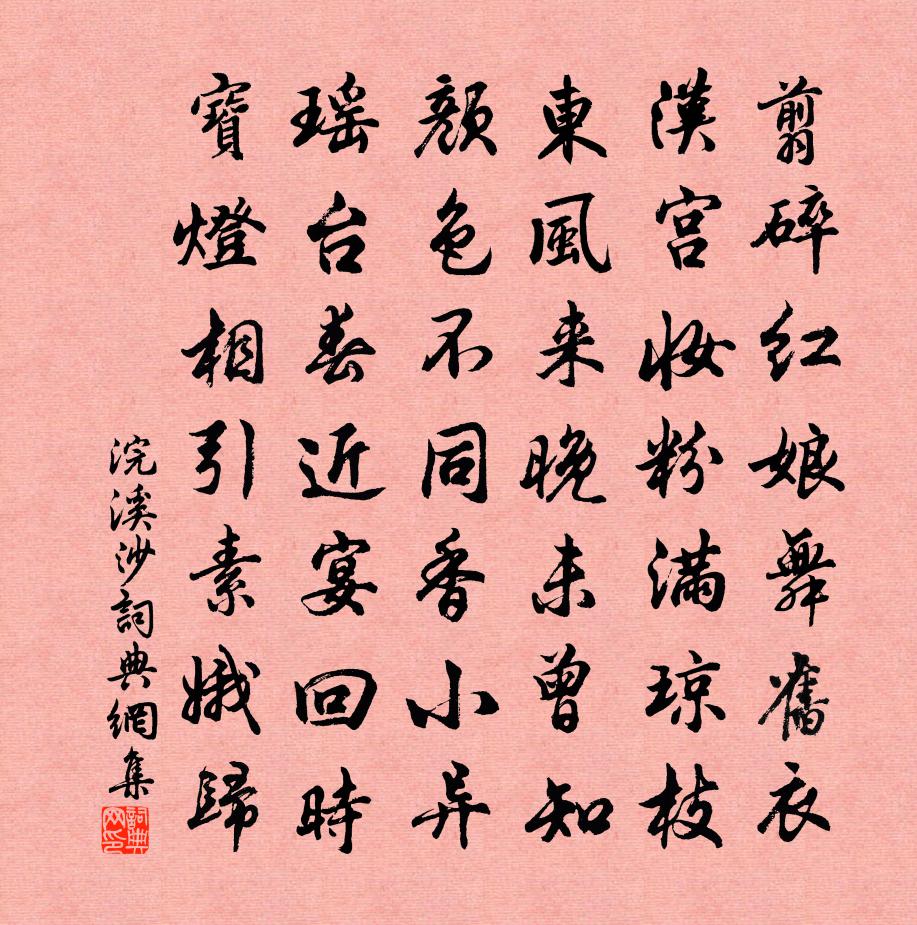 翦碎红娘舞舊衣
漢宮妝粉滿琼枝
東風来晚未曾知
顔色不同香小异
瑶台春近宴回時
寶燈相引素娥歸
浣溪沙詞典網集
詞典网印